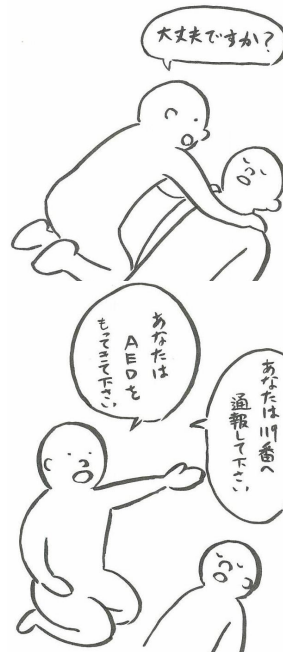 大丈夫ですか？
あなたは119番へ
通報して下さい
あなたは
AEDを
もってきて下さい